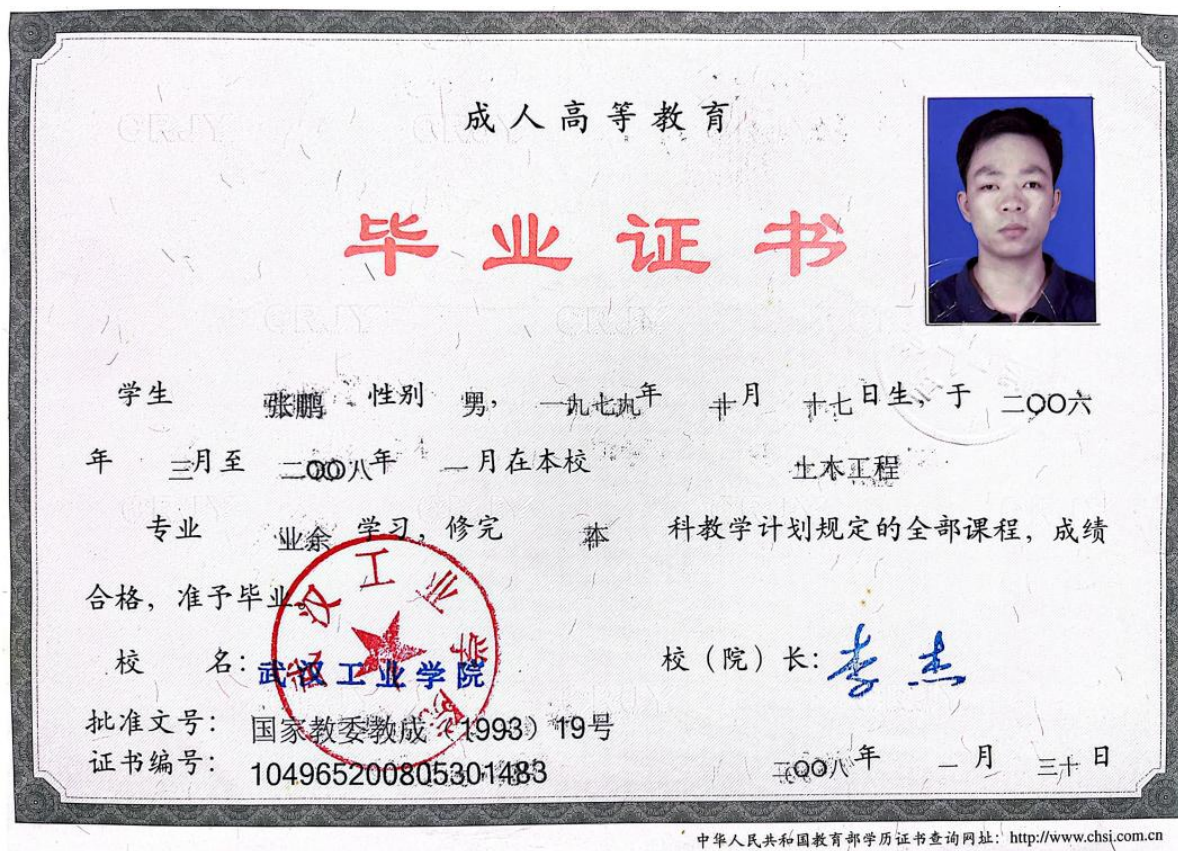 成人高等教育
毕业证书
学生 张鹏 性别 男, 一九七九年 月 十七日生, 于 二〇〇六
年 三月至 二〇〇八年 一月在本校 土木工程
专业 业余 学习, 修完 本 科教学计划规定的全部课程, 成绩
合格, 准予毕业。
校 名: 武汉工业学院 校(院)长: 李杰
批准文号: 国家教委教成(1993)19号
证书编号: 104965200805301483 二〇〇八年 一月 三十日
武汉工业学院
中华人民共和国教育部学历证书查询网址: http://www.chsi.com.cn